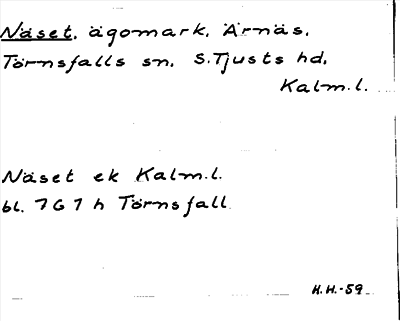 Näset, ägomark, Ärnäs,
Törnsfalls sn, S. Tjusts hd,
Kalm. l.
Näset ek Kalm. l.
bl. 7 G 7 h Törnsfall
H.H.-59